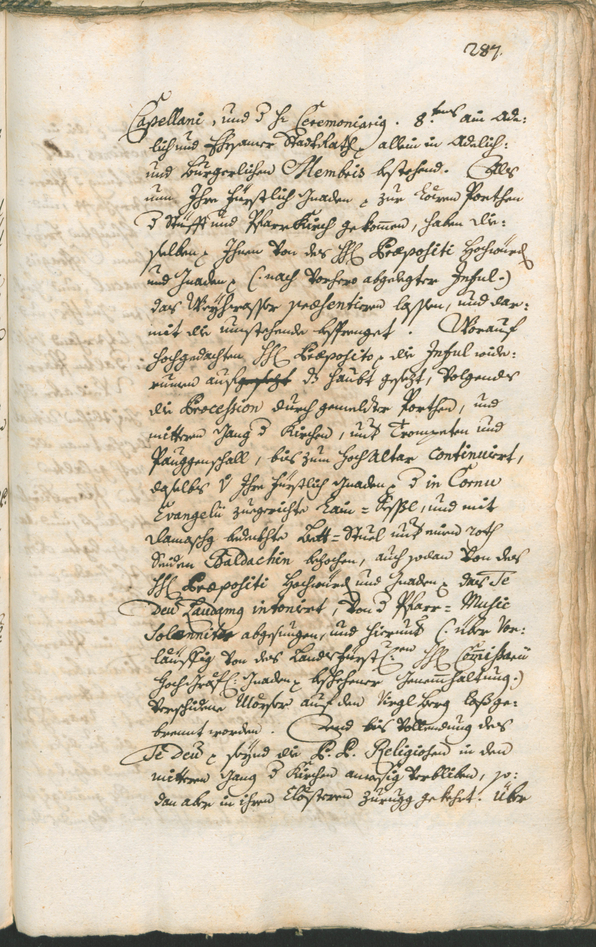 287.
Capellani, und d H: Ceremoniarig. 8tens ain Ade:
lich und Ehrsamer StattRath, allein in Adelich:
und Burgerlichen Membris bestehend. Alß
nun Ihre Fürstlich Gnaden zur Porthen
d Stüfft und PfarrKirch gekommen, haben die:
selben Ihnen von des HH Præpositi Hochwürd
und Gnaden (: nach vorhero abgelegter Inful :)
das Weyhwasser præsentieren lassen, und dar:
mit die umstehende besprenget. Worauf
Hochgedachten HH Præposito die Inful wide:
rumen auf dz Haubt gesezt, Volgendts
die Procession durch gemelter Porthen, und
mittern Gang d Kirchen, mit Trompeten und
Pauggenschall, bis zum HochAltar continuirt,
daselbs Ihre Fürstlich Gnaden d in Cornu
Evangelii zuegerichte, und mit
Damaschg bedeckhte Bett=Stuel mit einem roth
Seiden Baldachin, auch sodan von des
HH Præpositi Hochwürd und Gnaden das Te
Deu Laudamg intonirt, von d Pfarr=Music
Solenniter abgesungen, und hiermit (: über Vor:
läuffig von des Landtsfürstlichen HH Com̄issarii
Hoch Gräfl: Gnaden beschehener :)
Verschidene Mörser auf den Virgl Berg loßge:
brennt worden. bis Vollendung des
Te Deu, seynd die P. P. Religiosen in den
mittern Gang d Kirchen Verbliben, so:
dan aber in ihren Clösteren zurugg gekehrt. Über